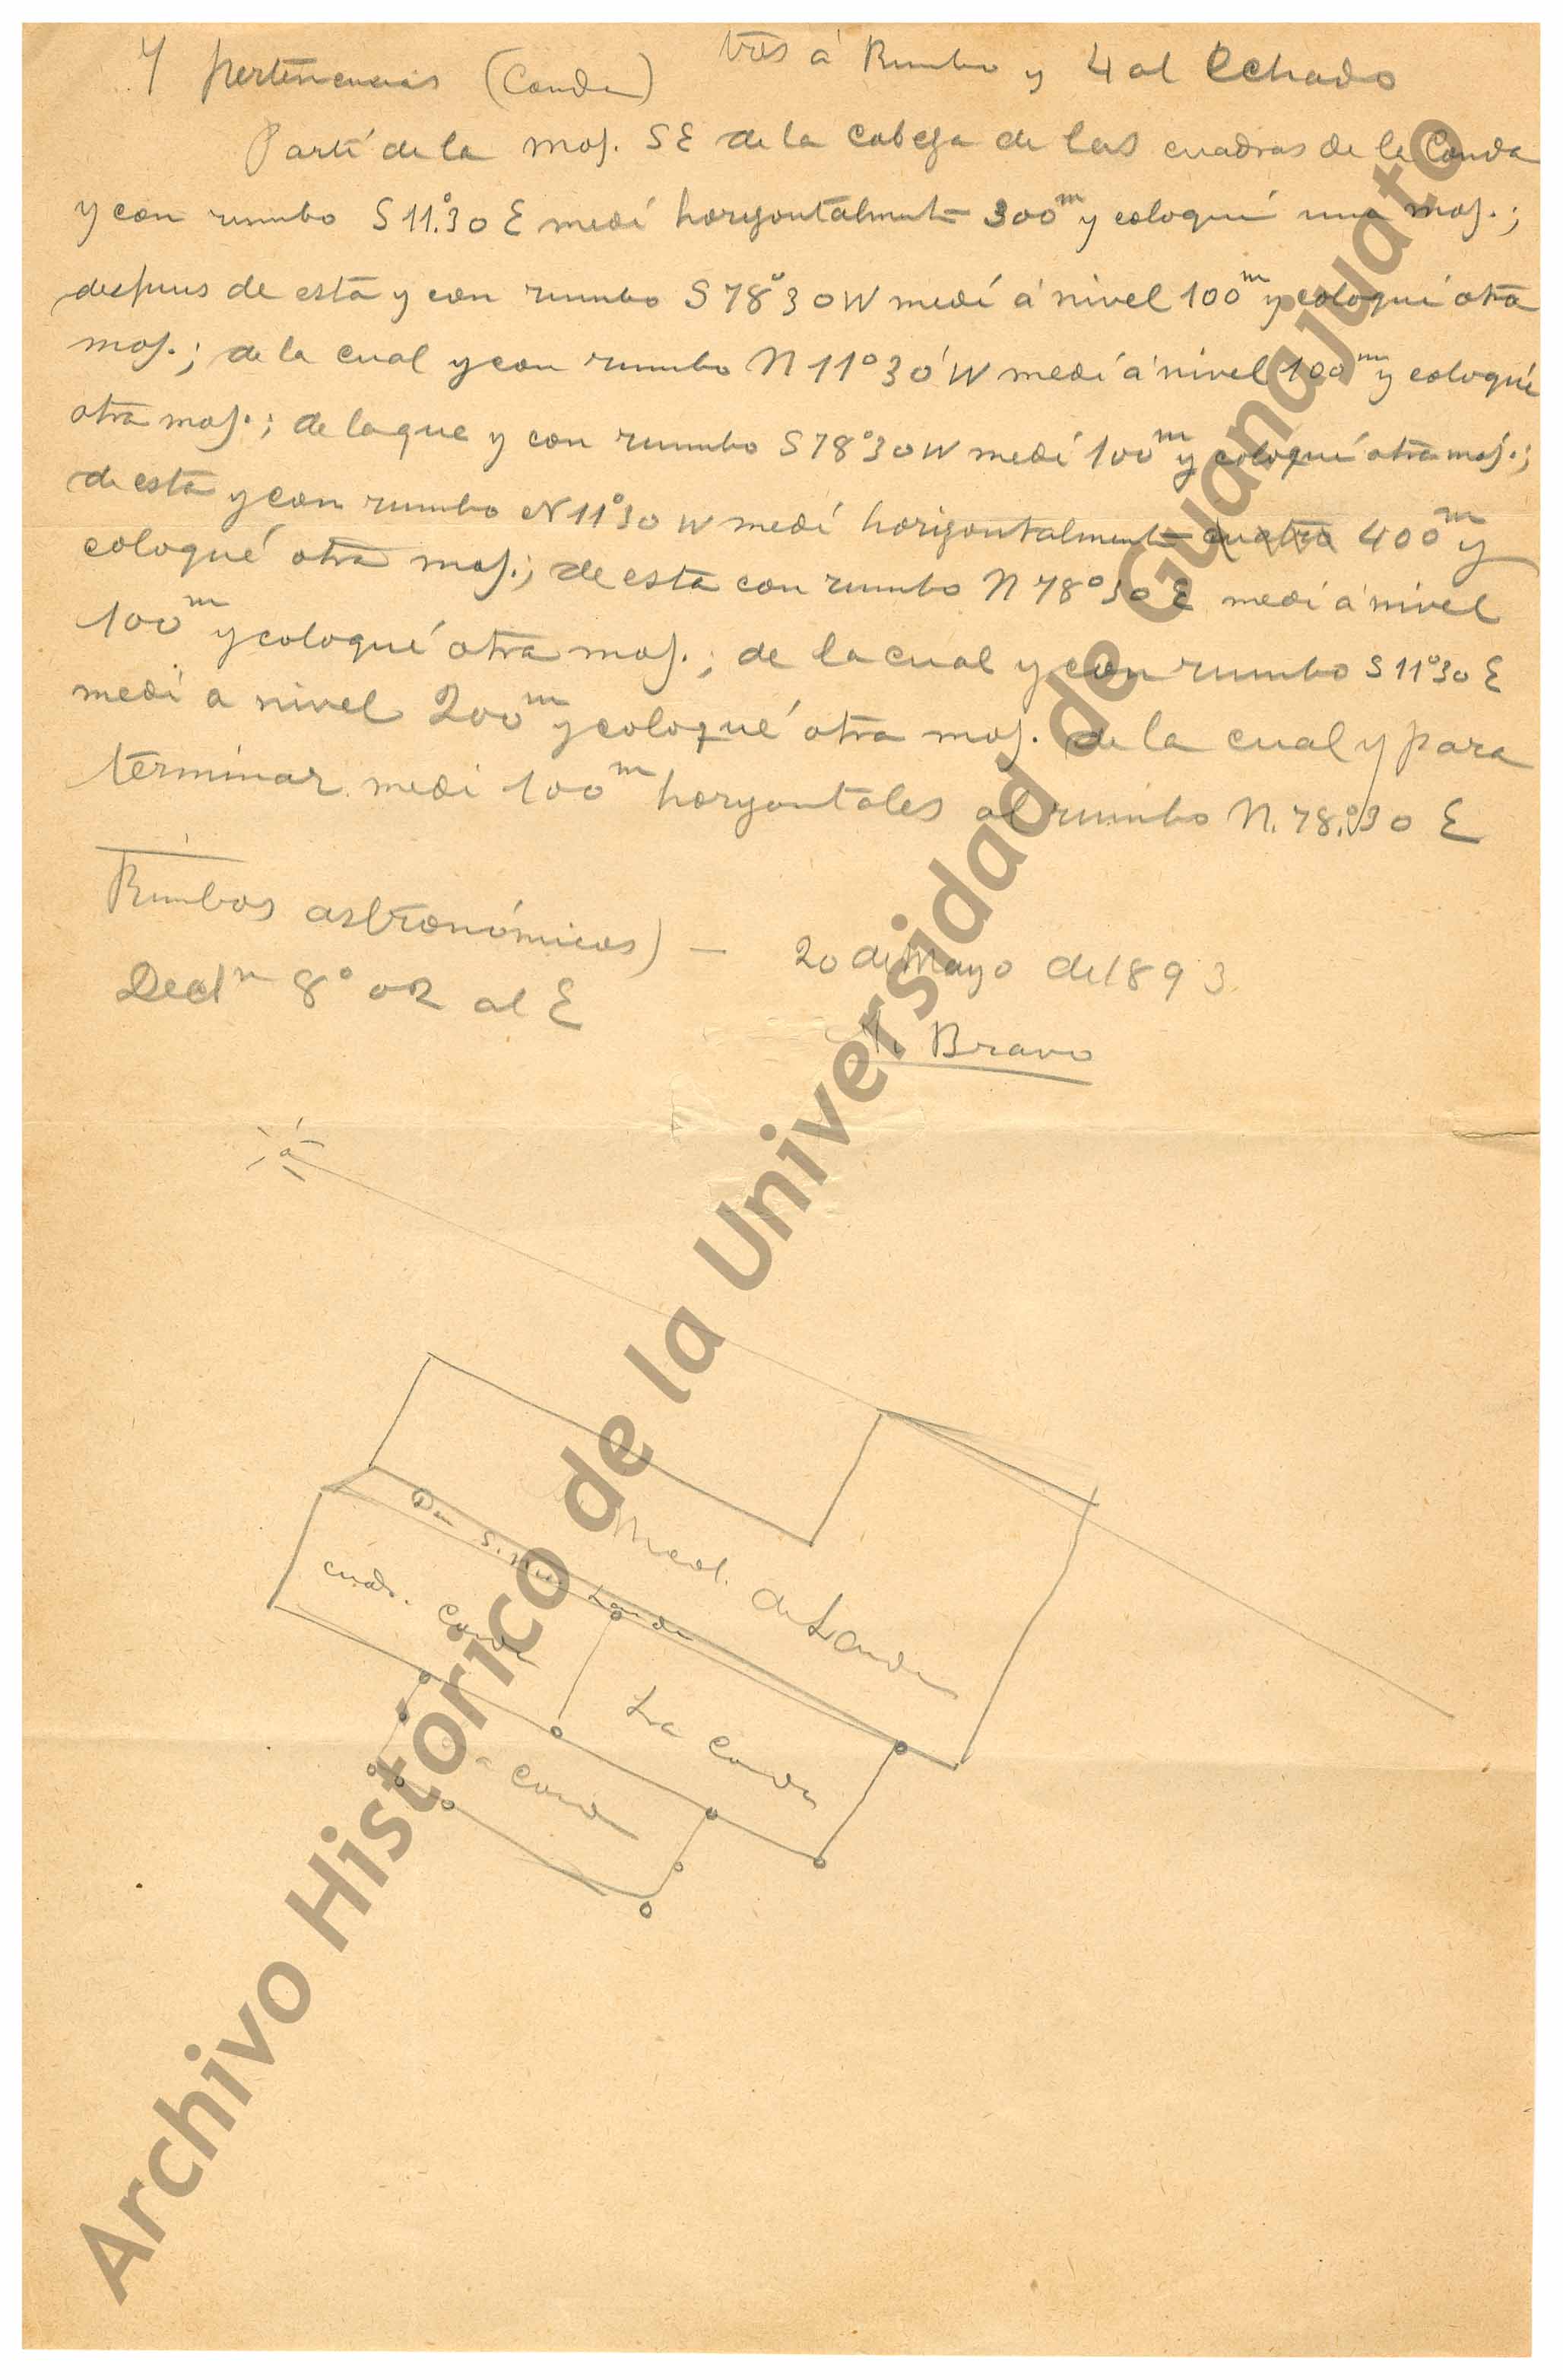 7 pertenencias (Conda) tres á Rumbo y 4 al Echado
Partí de la moj. SE de la cabeza de las cuadras de la Conda
y con rumbo S 11.°30 E medí horizontalmente 300m y coloqué una moj.;
despues de esta y con rumbo S 78°30 W medí á nivel 100m y coloqué otra
moj.; de la cual y con rumbo N 11°30' W medí á nivel 100m y coloqué
otra moj.; de la que y con rumbo S 78°30 W medí 100m y coloqué otra moj.;
de esta y con rumbo N 11°30 W medí horizontalmente cuatro 400m y
coloqué otra moj.; de esta con rumbo N 78°30 E medí á nivel
100m y coloqué otra moj.; de la cual y con rumbo S 11°30 E
medí a nivel 200m y coloqué otra moj. de la cual y para
terminar medí 100m horizontales al rumbo N. 78.°30 E
Rumbos astronómicos) — 20 de Mayo de 1893
Decln 8° 02 al E
Bravo
Dem S.
Conda
cuad. Conda
de Conda
La Conda
Conda
Archivo Histórico de la Universidad de Guanajuato